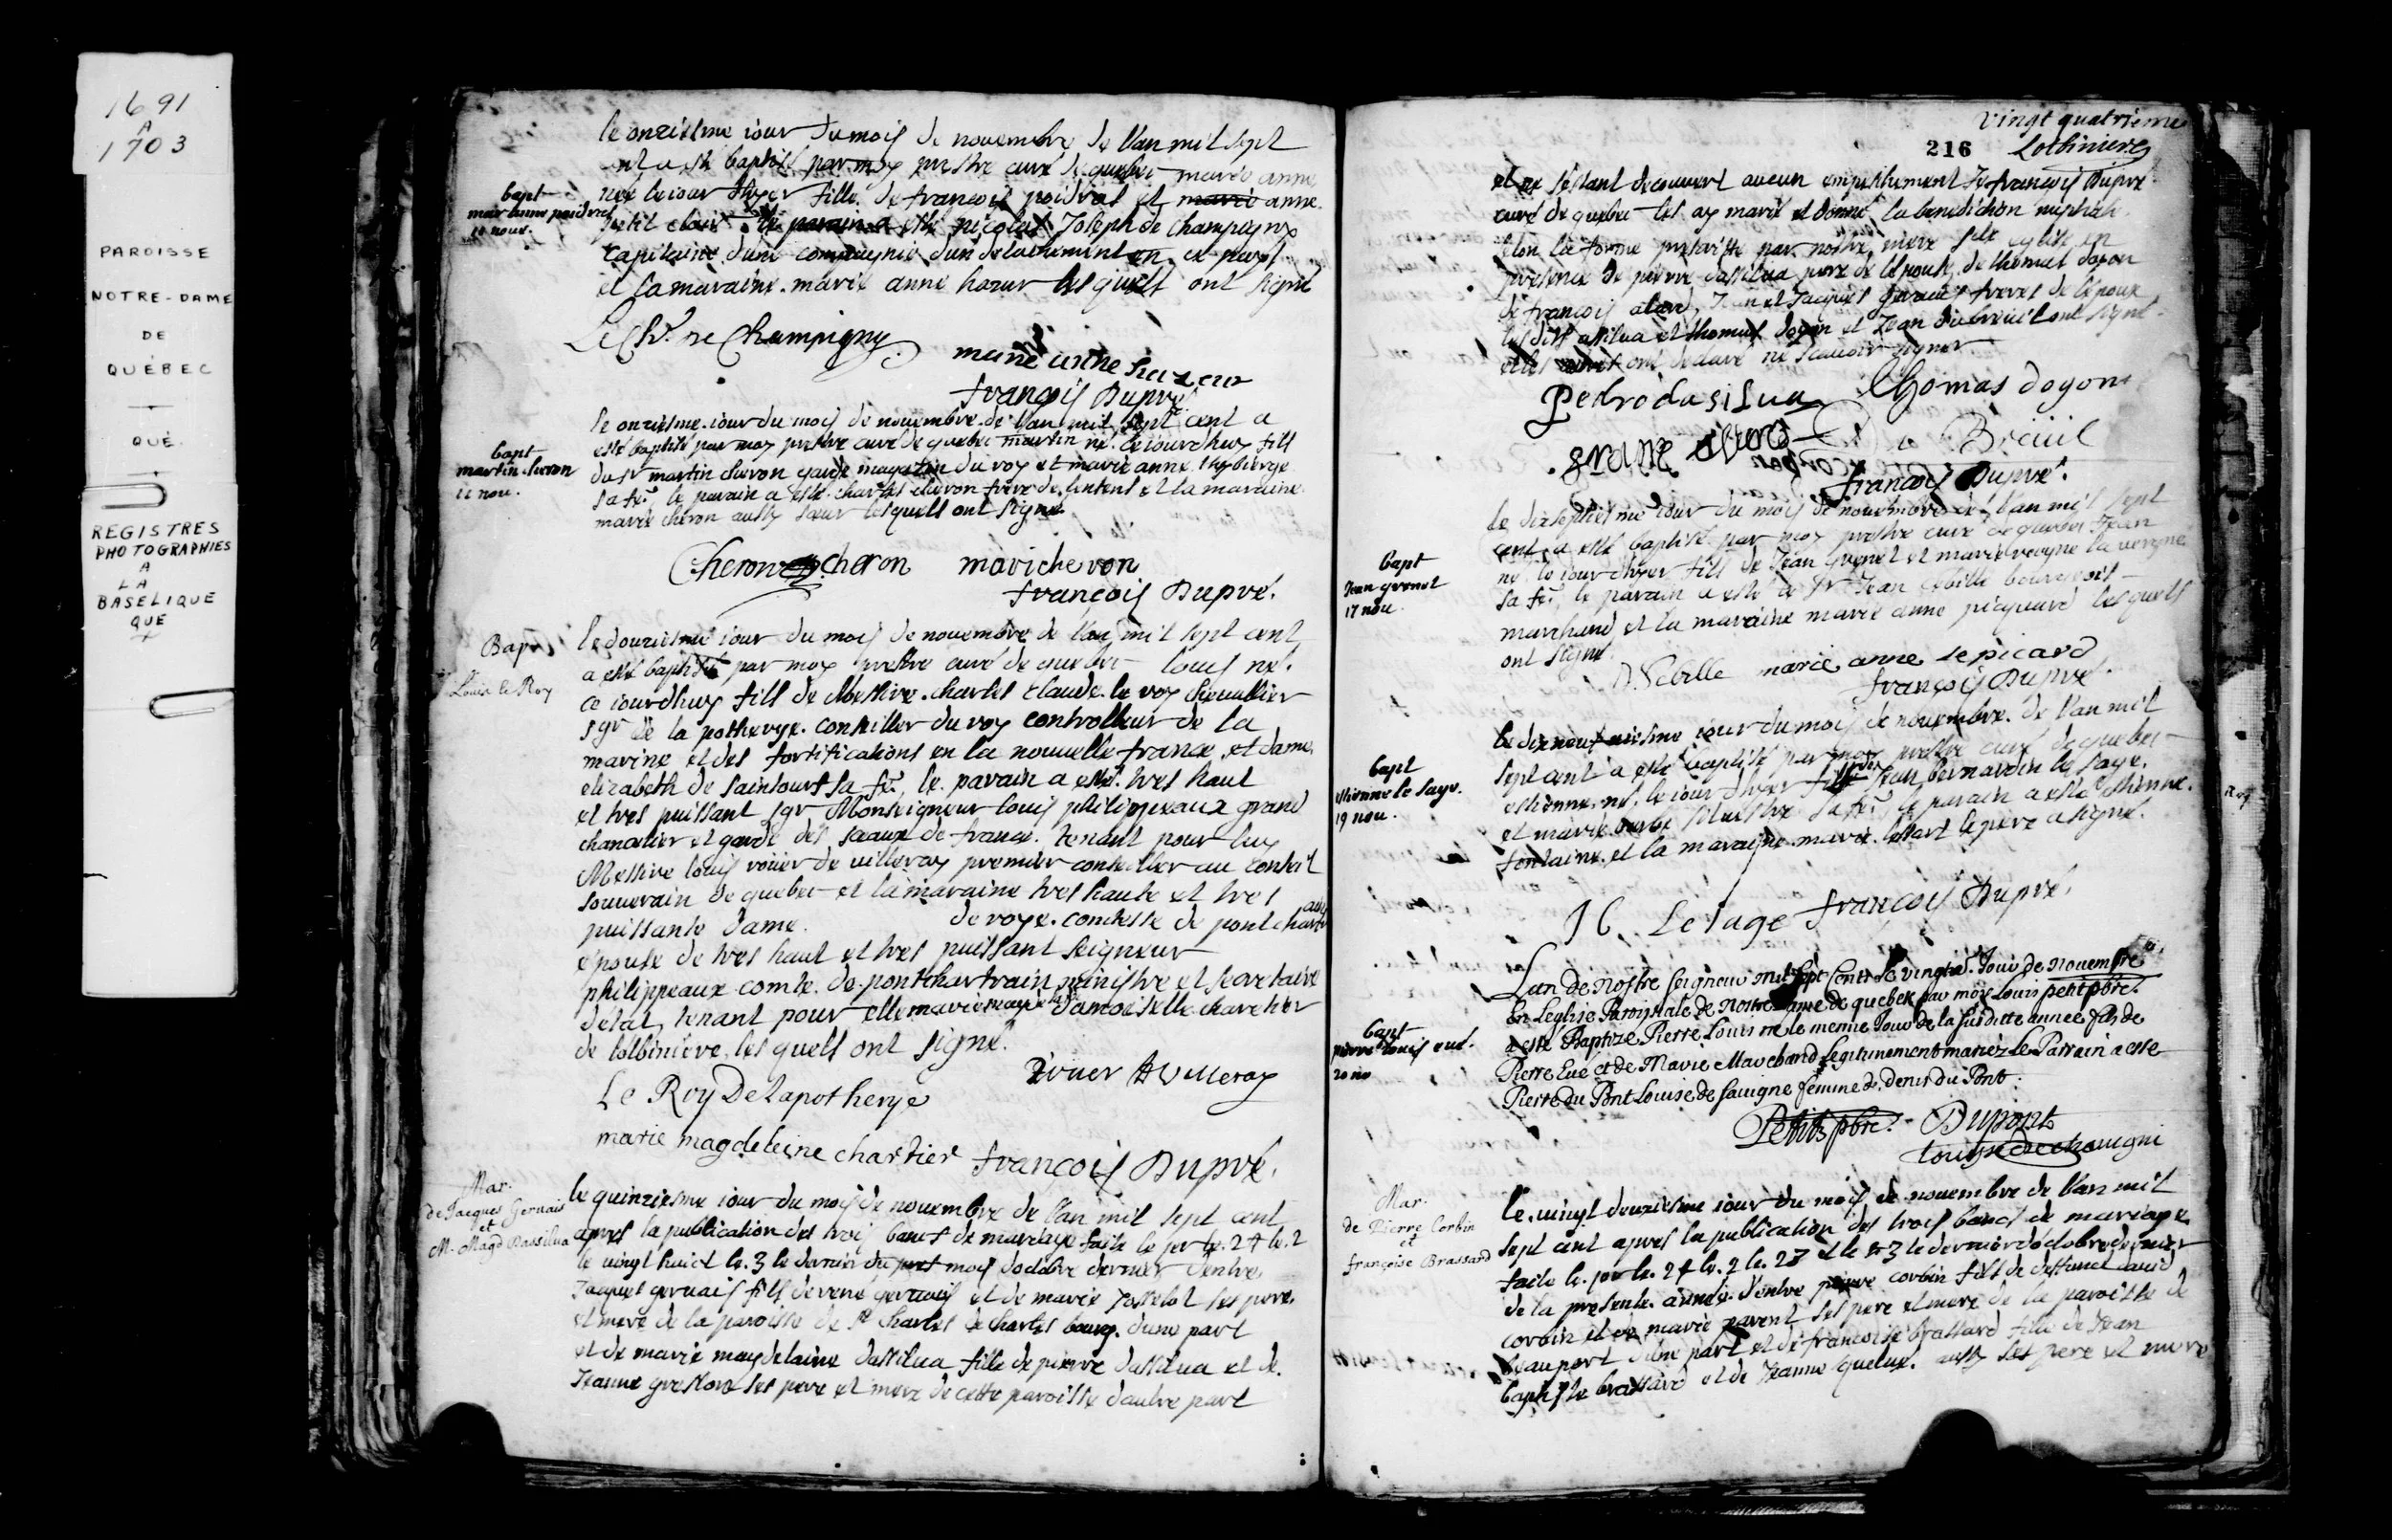 1691
A
1703
PAROISSE
NOTRE-DAME
DE
QUÉBEC
QUÉ.
REGISTRES
PHOTOGRAPHIES
A
LA
BASELIQUE
QUE
le onziesme iour du mois de nouembre de l'an mil sept
cent a esté baptisé par moy prestre curé de quebec marie anne
née le iour d'hyer fille de françois poidras et marie anne
le parain a esté nicolas Joseph de Champigny
capitaine d'une compagnie d'un detachement en ce pays
et la maraine marie anne hazur lesquels ont signé
bapt
mar anne poidras
Le Chr. De Champigny
marie anne hazeur
françois Dupré
bapt
martin cheron
11 nou.
le onziesme iour du mois de nouembre de l'an mil sept cent a
esté baptisé par moy prestre curé de quebec martin né ce iourdhuy fils
du sr martin cheron garde magazin du roy et marie anne
sa fe. le parain a esté charles cheron frere de l'enfent et la maraine
marie cheron aussy sœur lesquels ont signé
Cheron cheron mariecheron
françois Dupré.
Bap
Louis le Roy
le douziesme iour du mois de nouembre de l'an mil sept cent
a esté baptisé par moy prestre curé de quebec louis né
ce iourdhuy fils de Messire charles claude le roy cheuallier
sgr de la potherye conseiller du roy controlleur de la
marine et des fortifications en la nouuelle france et dame
elizabeth de saintours sa fe. le parain a esté tres haut
et tres puissant sgr Monseigneur louis philippeaux grand
chancelier et garde des seaux de france tenant pour luy
Messire louis rouer de uilleray premier conseiller au conseil
souuerain de quebec et la maraine tres haute et tres
puissante dame de roye comtesse de pontchar
epouse de tres haut et tres puissant seigneur
philippeaux comte de pontchartrain ministre et secretaire
detat, tenant pour elle marie damoiselle chartier
de lotbiniere lesquels ont signé.
Rouer de Villeray
Le Roy De lapotherye
marie magdeleine chartier françois Dupré.
Mar.
de Jacques Geruais
et
M. Magd Dassilua
le quinziesme iour du mois de nouembre de l'an mil sept cent
apres la publication des trois bancs de mariage faite le per le 24 le 2
le uingt huict le 3 le dernier du mois doctobre dernier d'entre
Jacques geruais fils de rené geruais et de marie Josselot ses pere
et mere de la paroisse de st charles de charles bourg d'une part
et de marie magdelaine dassilua fille de pierre dassilua et de
Jeanne greslon ses pere et mere de cette paroisse d'autre part
vingt quatrieme
216 Lotbiniere
et ne s'estant decouuert aucun empeschement Je françois Dupré
curé de quebec les ay marié et donné la benediction nuptiale
selon la forme prescritte par nostre mere ste eglise en
presence de pierre dassilua pere de l'epouse, de thomas doyon
de françois alard, Jean et Jacques geruais freres de l'epoux
les dits assilua et thomas doyon et Jean du breuil ont signé
et les autres ont declaré ne scauoir signer
Pedro da silua Thomas doyon
Breüil
françois Dupré.
bapt
Jean grenet
17 nou.
le dixseptiesme iour du mois de nouembre de l'an mil sept
cent a esté baptisé par moy prestre curé de quebec Jean
né le iour d'hyer fils de Jean grenet et marie la vergne
sa fe. le parain a esté le sr Jean sebille bourgeois
marchand et la maraine marie anne picquard lesquels
ont signé
Sebille marie anne le picard
françois Dupré.
bapt
estienne le sage.
19 nou.
le dixneufuiesme iour du mois de nouembre de l'an mil
sept cent a esté baptisé par moy prestre curé de quebec
estienne né le iour d'hyer fils de Jean bernardin le sage
et marie barbe siluestre sa fe. le parain a esté estienne
fontaine et la maraine marie lessart le pere a signé.
Le sage françois Dupré.
bapt
pierre louis eué.
20 no
Lan de Nostre Seigneur Mil Sept Cents Le vingtie. Jour de Nouembre
En Leglise Paroissiale de Nostre Dame de quebek par moy Louis petit pbre.
a esté Baptize Pierre Louis né le meme Jour de la susditte année fils de
Pierre Eué et de Marie Marchand Legitimement mariez Le Parrain a esté
Pierre du Pont Louise de sauigne femme de denis du Pont.
Petit pbre. Dupont
Louise de chauigni
Mar.
de Pierre Corbin
et
françoise Brassard
le uingt deuziesme iour du mois de nouembre de l'an mil
sept cent apres la publication des trois bancs de mariage
faite le per le 24 le 2 le 28 et le 3 le dernier d'octobre dernier
de la presente année d'entre pierre corbin fils de deffunct dauid
corbin et de marie parent ses pere et mere de la paroisse de
beauport d'une part et de françoise brassard fille de Jean
baptiste brassard et de Jeanne quelue aussy ses pere et mere